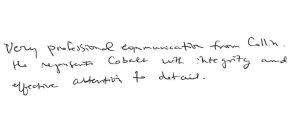 Very professional communication from Collin.
He represents Cobalt with integrity and
effective attention to detail.